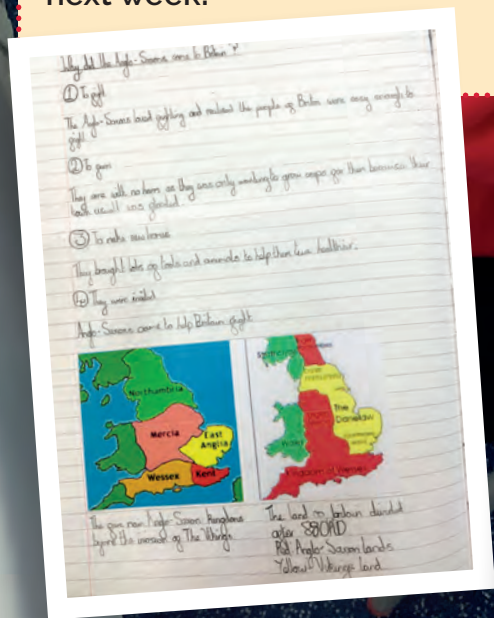 next week.
Why did the Anglo-Saxons come to Britain?
① To fight
The Anglo-Saxons loved fighting and realised the people of Britain were easy enough to
fight.
② To farm
They came with no harm as they was only wanting to grow crops for them because their
land usually was flooded.
③ To make new homes
They brought lots of tools and animals to help them live healthier.
④ They were invited
Anglo-Saxons came to help Britain fight
Northumbria
Mercia
East
Anglia
Wessex
Kent
The
Danelaw
Wales
Kingdom of Wessex
The five new Anglo-Saxon Kingdoms
before the invasion of The Vikings
The land in britain divided
after 880AD
Red Anglo-Saxon lands
Yellow Vikings land